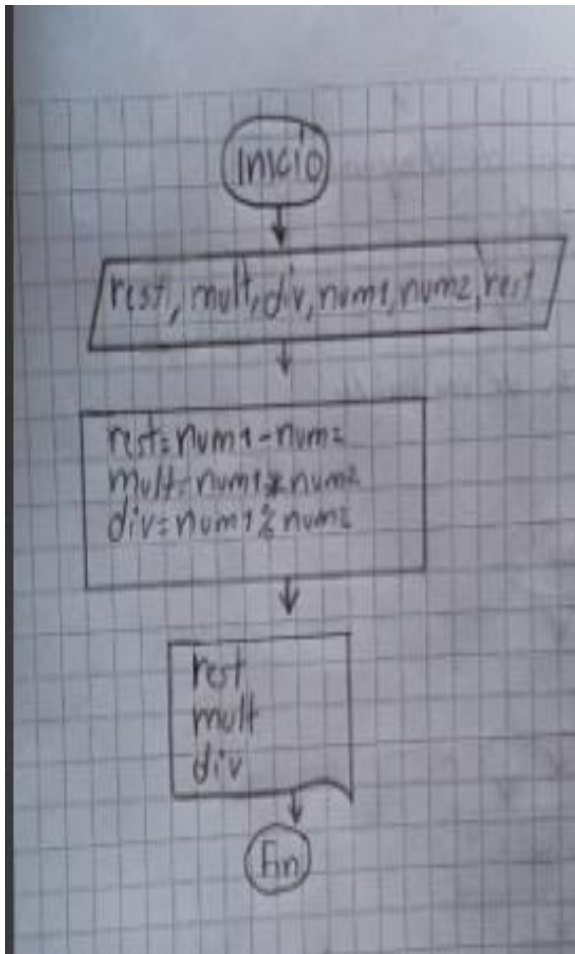 Inicio
rest, mult, div, num1, num2, rest
rest=num1-num2
mult=num1*num2
div=num1%num2
rest
mult
div
Fin